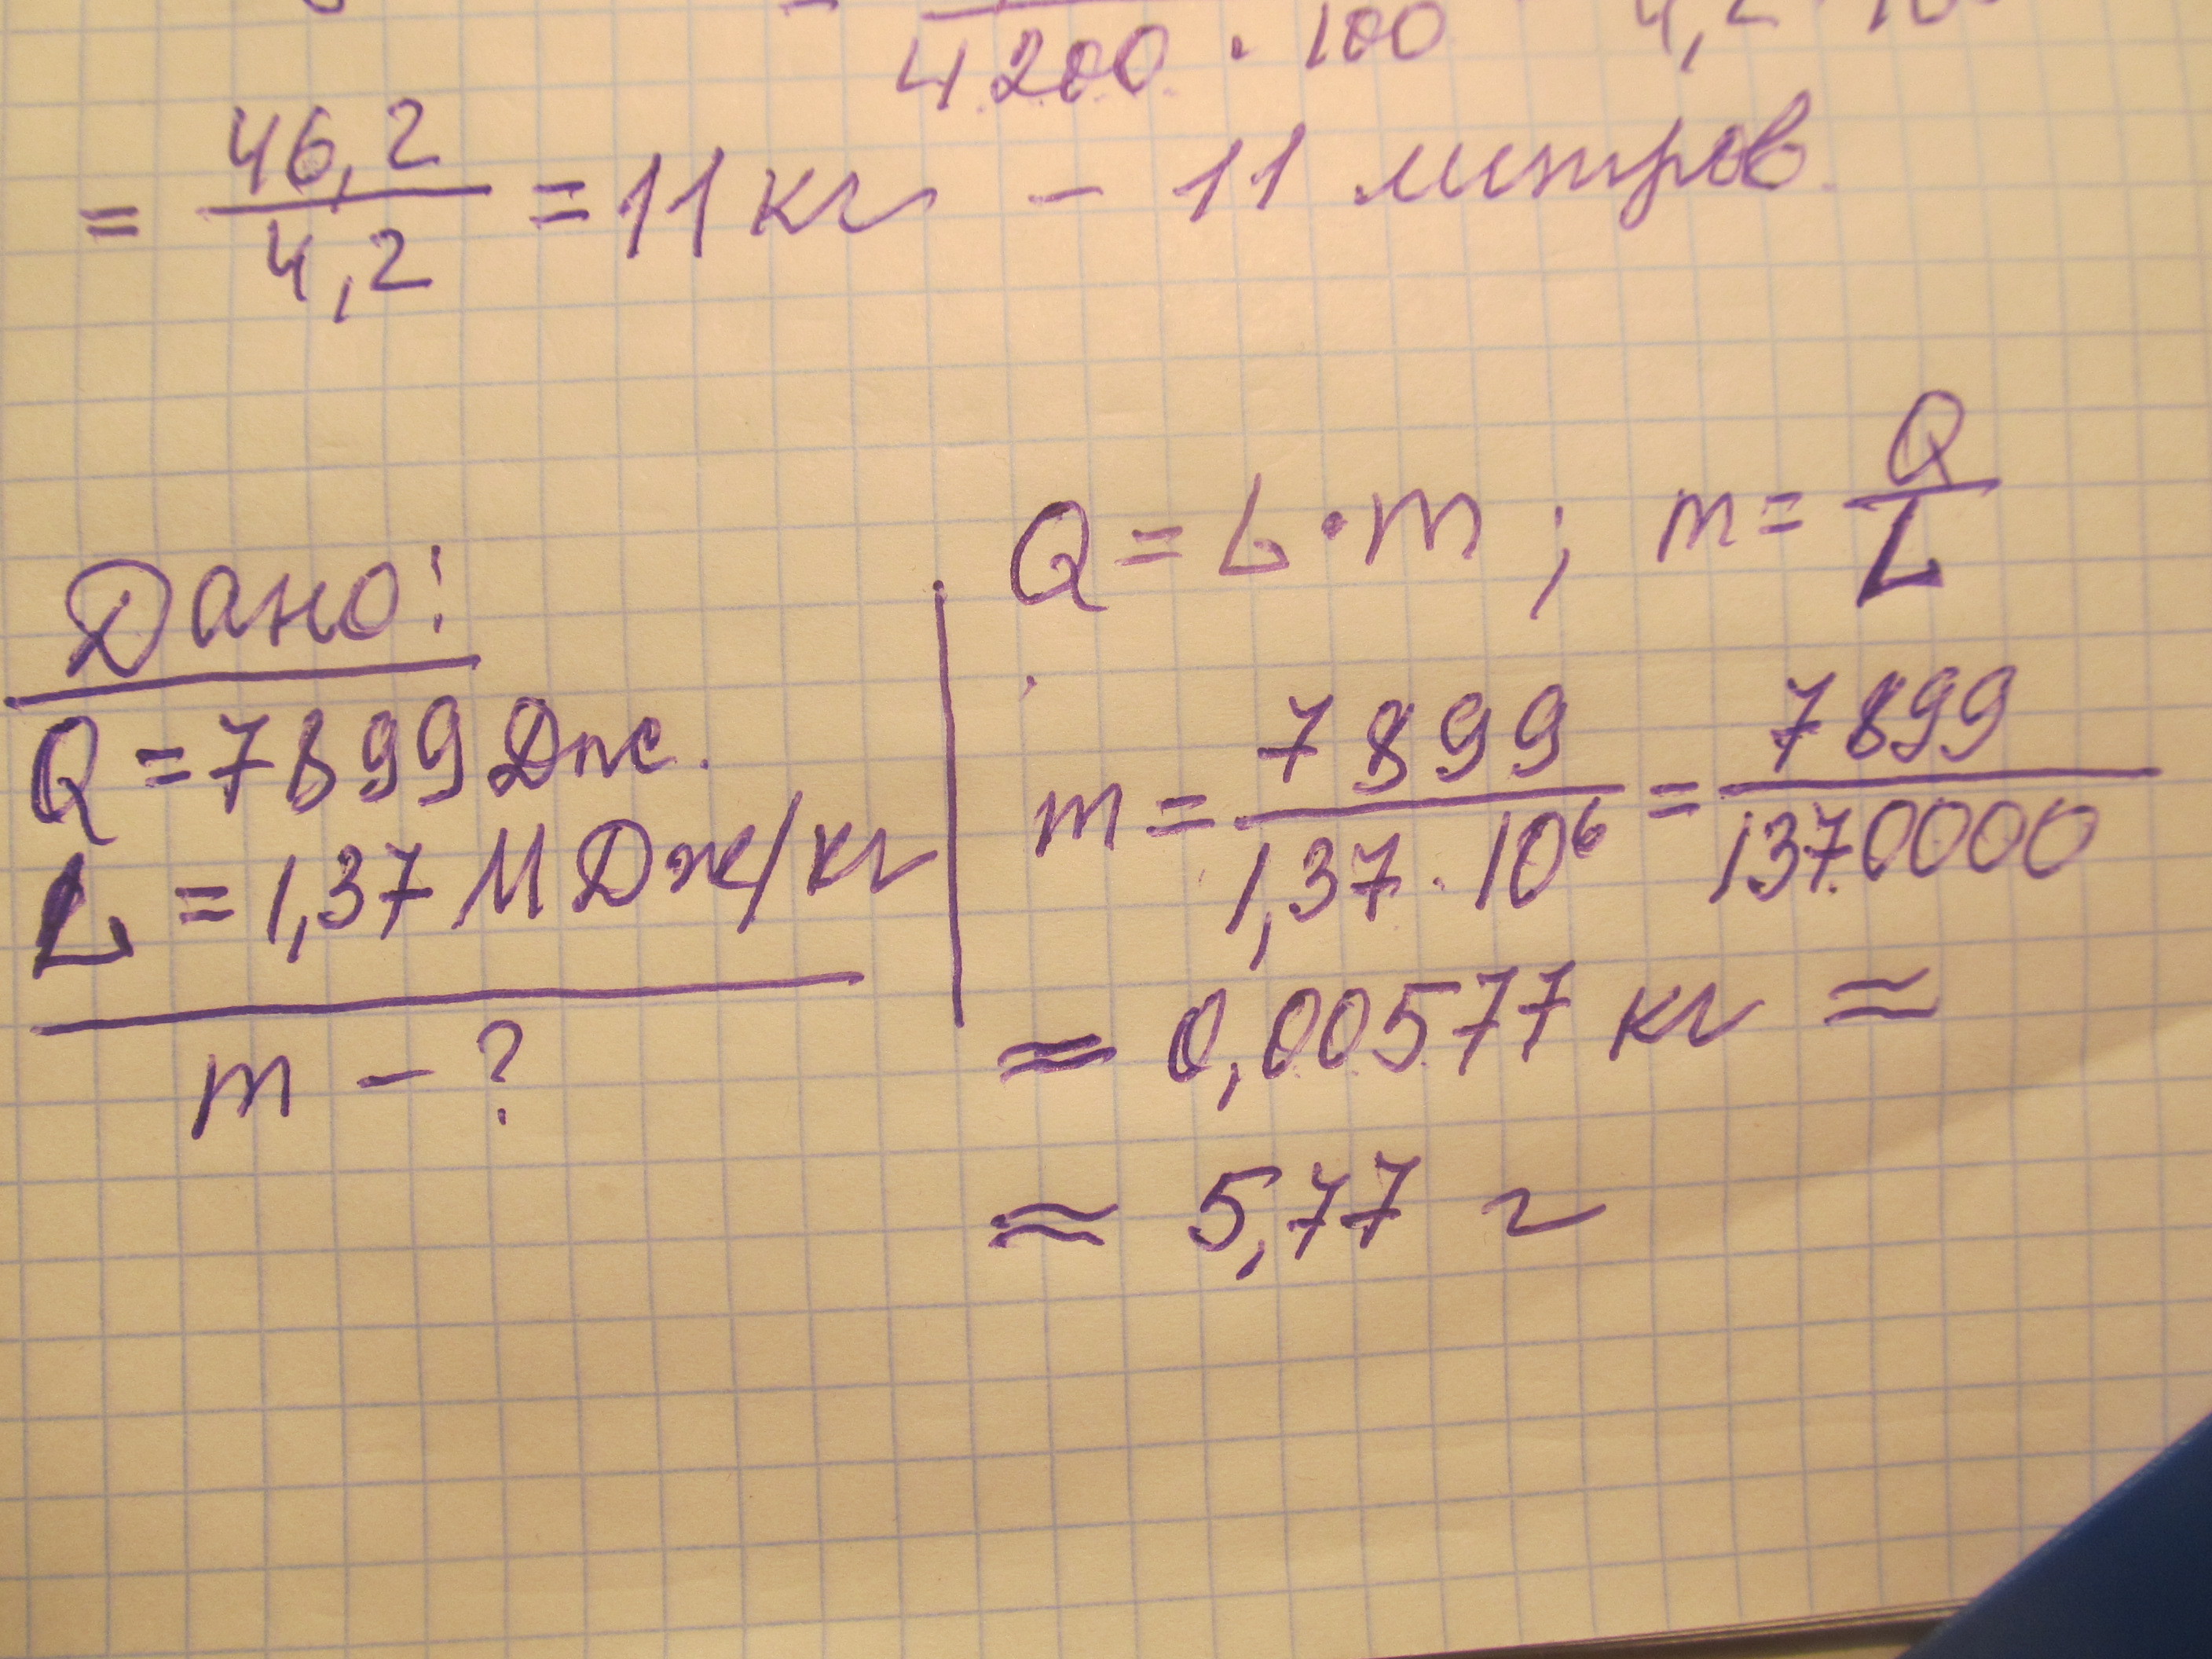 4200 · 100
= 46,2 / 4,2 = 11 кг – 11 литров.
Q = L · m ; m = Q / L
Дано:
Q = 7899 Дж.
L = 1,37 МДж/кг
m – ?
m = 7899 / 1,37 · 10⁶ = 7899 / 1370000
≈ 0,00577 кг ≈
≈ 5,77 г